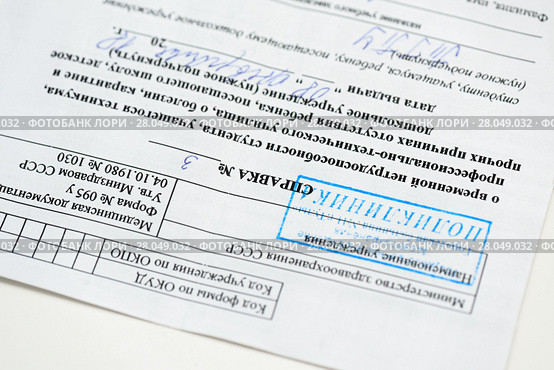 Код формы по ОКУД
Код учреждения по ОКПО
Министерство здравоохранения СССР
Наименование учреждения
ПОЛИКЛИНИК
Медицинская документац
Форма № 095 у
Утв. Минздравом СССР
04.10.1980 № 1030
СПРАВКА № 3
о временной нетрудоспособности студента, учащегося техникума,
профессионально-технического училища, о болезни, карантине и
прочих причинах отсутствия ребенка, посещающего школу, детское
дошкольное учреждение (нужное подчеркнуть)
дата выдачи " " 20 г.
студенту, учащемуся, ребенку, посещающему дошкольное учреждение
(нужное подчеркнуть)
название учебного
Фамилия, имя,
28.049.032 · ФОТОБАНК ЛОРИ · 28.049.032 · ФОТОБАНК ЛОРИ · 28.049.032
28.049.032 · ФОТОБАНК ЛОРИ · 28.049.032 · ФОТОБАНК ЛОРИ · 28.049.032